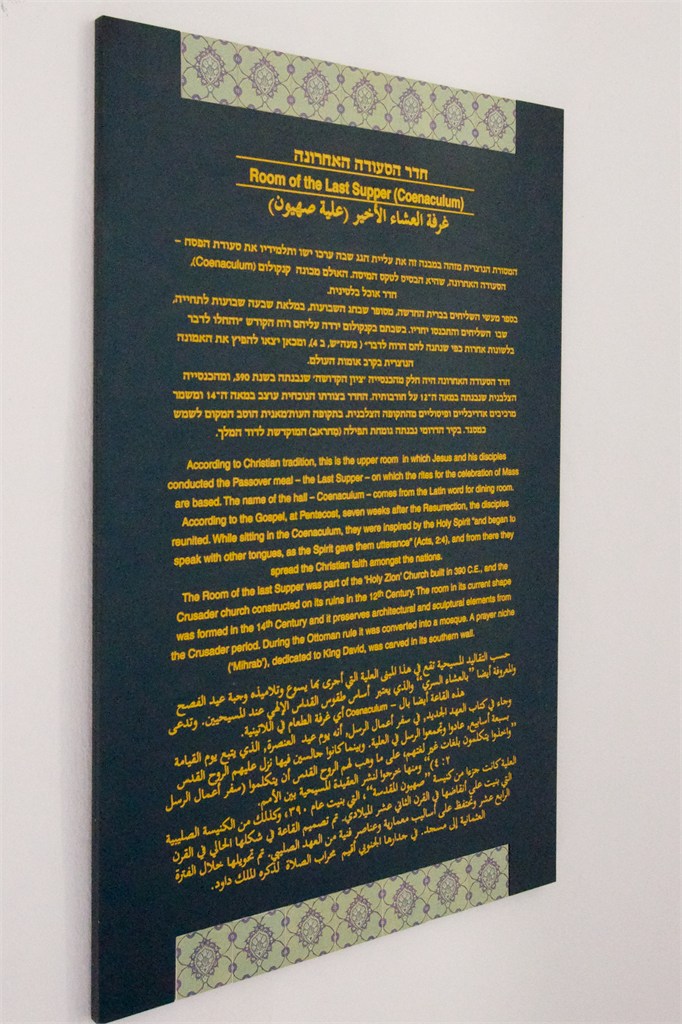 חדר הסעודה האחרונה
Room of the Last Supper (Coenaculum)
غرفة العشاء الأخير (علية صهيون)
המסורת הנוצרית מזהה במבנה זה את עליית הגג שבה ערכו ישו ותלמידיו את סעודת הפסח –
הסעודה האחרונה, שהיא הבסיס לטקס המיסה. האולם מכונה קנקולום (Coenaculum),
חדר אוכל בלטינית.
בספר מעשי השליחים בברית החדשה, מסופר שבחג השבועות, במלאת שבעה שבועות לתחייה,
שבו השליחים והתכנסו יחדיו. בשבתם בקנקולום ירדה עליהם רוח הקודש "והחלו לדבר
בלשונות אחרות כפי שנתנה להם הרוח לדבר" (מעה"ש, ב 4), ומכאן יצאו להפיץ את האמונה
הנוצרית בקרב אומות העולם.
חדר הסעודה האחרונה היה חלק מהכנסייה 'ציון הקדושה' שנבנתה בשנת 390, ומהכנסייה
הצלבנית שנבנתה במאה ה־12 על חורבותיה. החדר בצורתו הנוכחית עוצב במאה ה־14 ומשמר
מרכיבים אדריכליים ופיסוליים מהתקופה הצלבנית. בתקופה העות'מאנית הוסב המקום לשמש
כמסגד. בקיר הדרומי נבנתה גומחת תפילה (מִחְרַאבּ) המוקדשת לדוד המלך.
According to Christian tradition, this is the upper room in which Jesus and his disciples
conducted the Passover meal – the Last Supper – on which the rites for the celebration of Mass
are based. The name of the hall – Coenaculum – comes from the Latin word for dining room.
According to the Gospel, at Pentecost, seven weeks after the Resurrection, the disciples
reunited. While sitting in the Coenaculum, they were inspired by the Holy Spirit "and began to
speak with other tongues, as the Spirit gave them utterance" (Acts, 2:4), and from there they
spread the Christian faith amongst the nations.
The Room of the last Supper was part of the 'Holy Zion' Church built in 390 C.E., and the
Crusader church constructed on its ruins in the 12th Century. The room in its current shape
was formed in the 14th Century and it preserves architectural and sculptural elements from
the Crusader period. During the Ottoman rule it was converted into a mosque. A prayer niche
('Mihrab'), dedicated to King David, was carved in its southern wall.
حسب التقاليد المسيحية تقع في هذا المبنى العلية التي أجرى بها يسوع وتلاميذه وجبة عيد الفصح
والمعروفة أيضا "بالعشاء السري" والذي يعتبر أساس طقوس القداس الإلهي عند المسيحيين. وتدعى
هذه القاعة أيضا بال – Coenaculum أي غرفة الطعام في اللاتينية.
وجاء في كتاب العهد الجديد، في سفر أعمال الرسل، أنه يوم عيد العنصرة، الذي يتبع يوم القيامة
بسبعة أسابيع، عادوا وتجمعوا الرسل في العلية. وبينما كانوا جالسين فيها نزل عليهم الروح القدس
"واخذوا يتكلمون بلغات غير لغتهم، على ما وهب لهم الروح القدس أن يتكلموا (سفر أعمال الرسل
٢: ٤)" ومنها خرجوا لنشر العقيدة المسيحية بين الأمم.
العلية كانت جزءا من كنيسة "صهيون المقدسة"، التي بنيت عام ٣٩٠، وكذلك من الكنيسة الصليبية
التي بنيت على أنقاضها في القرن الثاني عشر الميلادي. تم تصميم القاعة في شكلها الحالي في القرن
الرابع عشر وتحتفظ على أساليب معمارية وعناصر فنية من العهد الصليبي. تم تحويلها خلال الفترة
العثمانية إلى مسجد. في جدارها الجنوبي أقيم محراب الصلاة لذكره الملك داود.